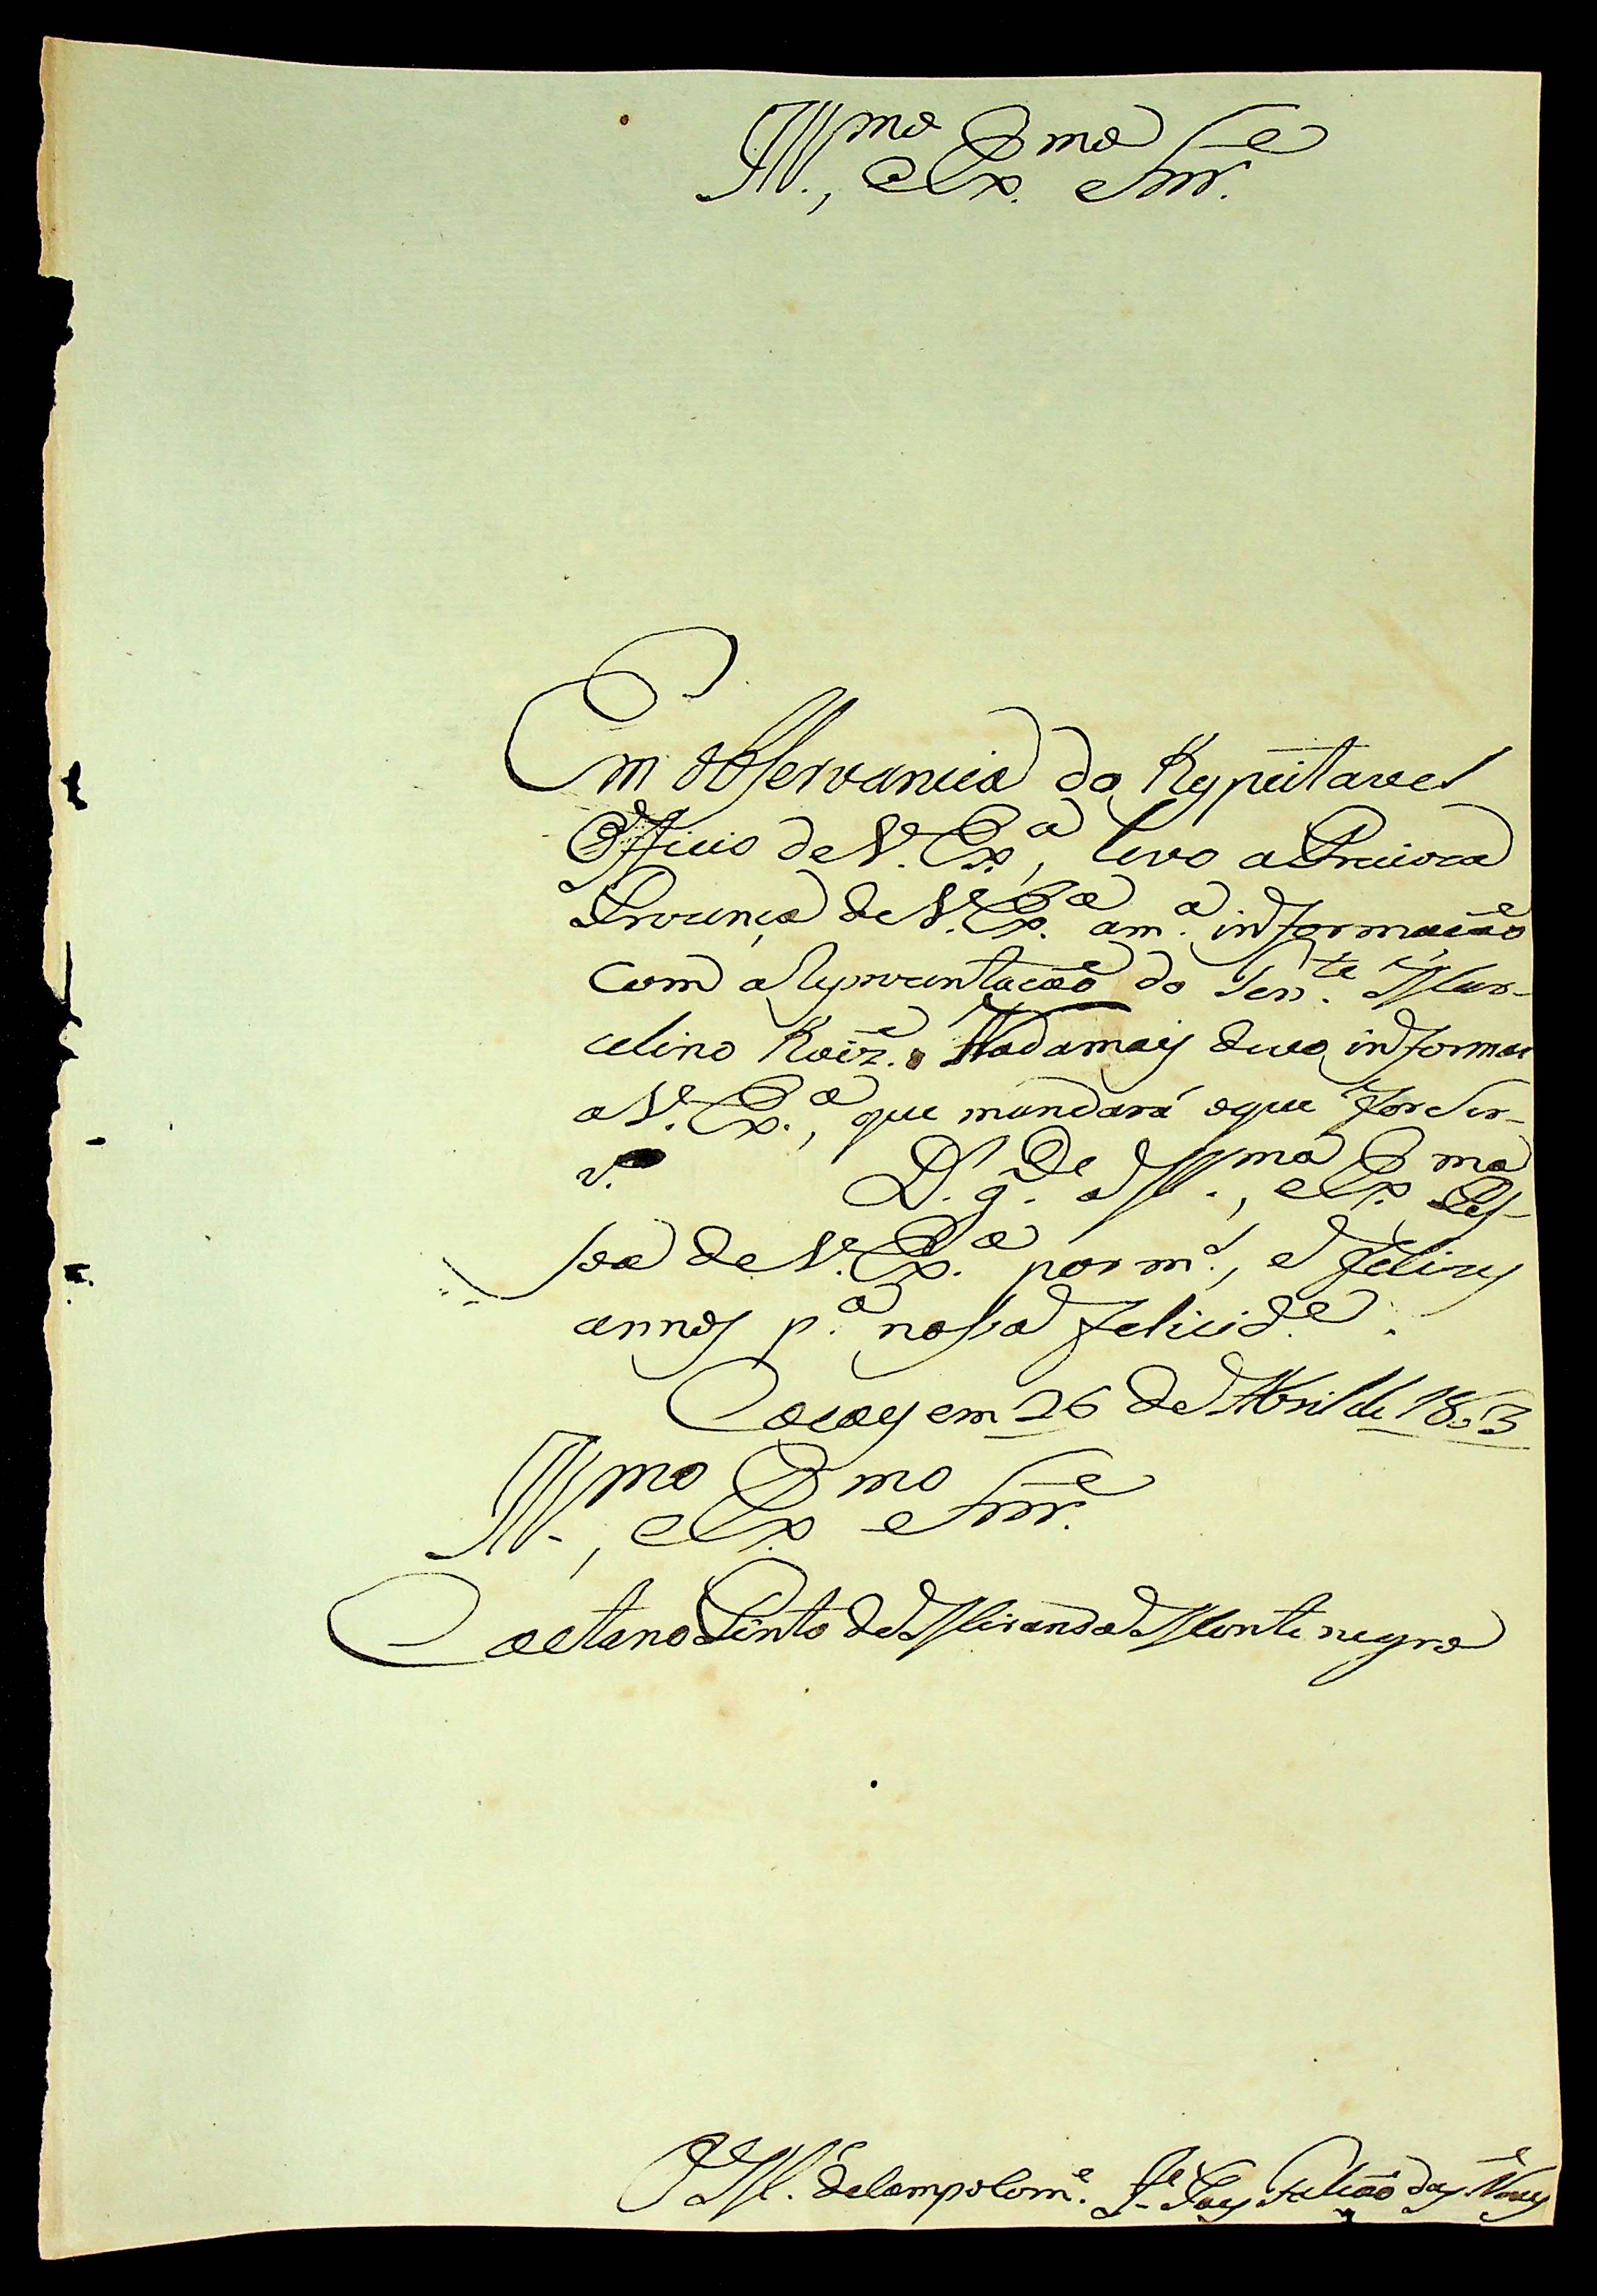 Ill.mo, e Ex.mo Snr.e
Em observancia do Respeitavel
Officio de V. Ex.a, levo a Precioza
Prezença de V. Ex.a a m.a informação
com a Reprezentação do Ten.te Mar-
celino Roiz. Nada mais devo informar
a V. Ex.a, que mandará o que for Ser-
v.
D.s g.de a Ill.ma, e Ex.ma Pes-
soa de V. Ex.a por m.s, e felizes
annos p.a nossa felicid.e.
em 26 de Abril de 1803
Ill.mo, e Ex.mo Snr.e
Caetano Pinto de Miranda Montenegro